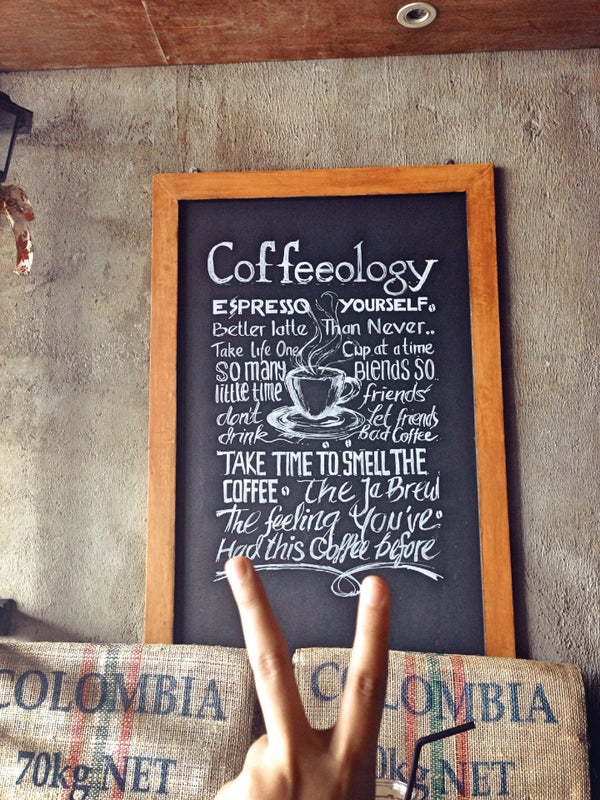 Coffeeology
ESPRESSO YOURSELF
Better latte Than Never..
Take life One Cup at a time
SO many Blends SO
little time friends
don't let friends
drink Bad Coffee.
TAKE TIME TO SMELL THE
COFFEE. The Ja Brew
The feeling You've
Had this Coffee before
COLOMBIA
70kg NET
COLOMBIA
0kg NET